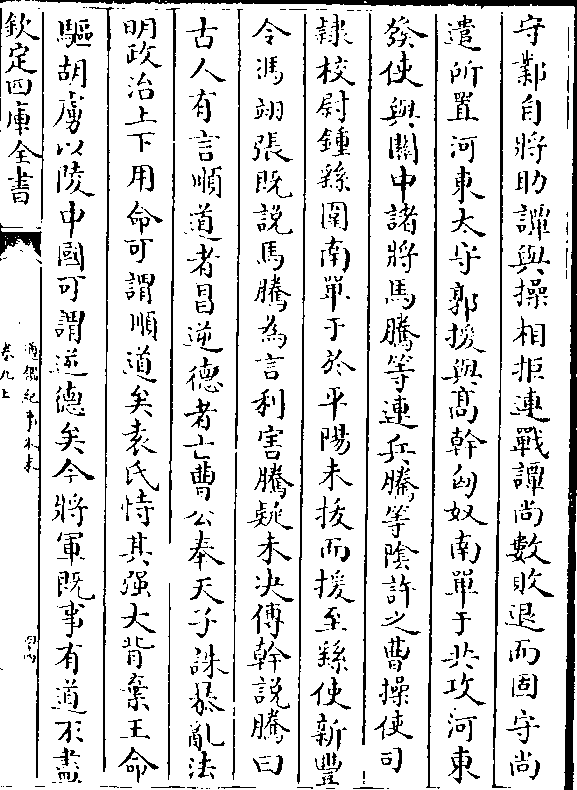 守鄴自將助譚與操相拒連戰譚尚數敗退而固守尚
遣所置河東太守郭援與高幹匈奴南單于共攻河東
發使與關中諸將馬騰等連兵騰等陰許之曹操使司
隷校尉鍾繇圍南單于於平陽未拔而援至繇使新豐
令馮翊張既說馬騰為言利害騰疑未决傅幹說騰曰
古人有言順道者昌逆德者亡曹公奉天子誅暴亂法
明政治上下用命可謂順道矣袁氏恃其强大背棄王命
驅胡虜以陵中國可謂逆德矣今將軍既事有道不盡
欽定四庫全書
通鑑紀事本末
卷九上